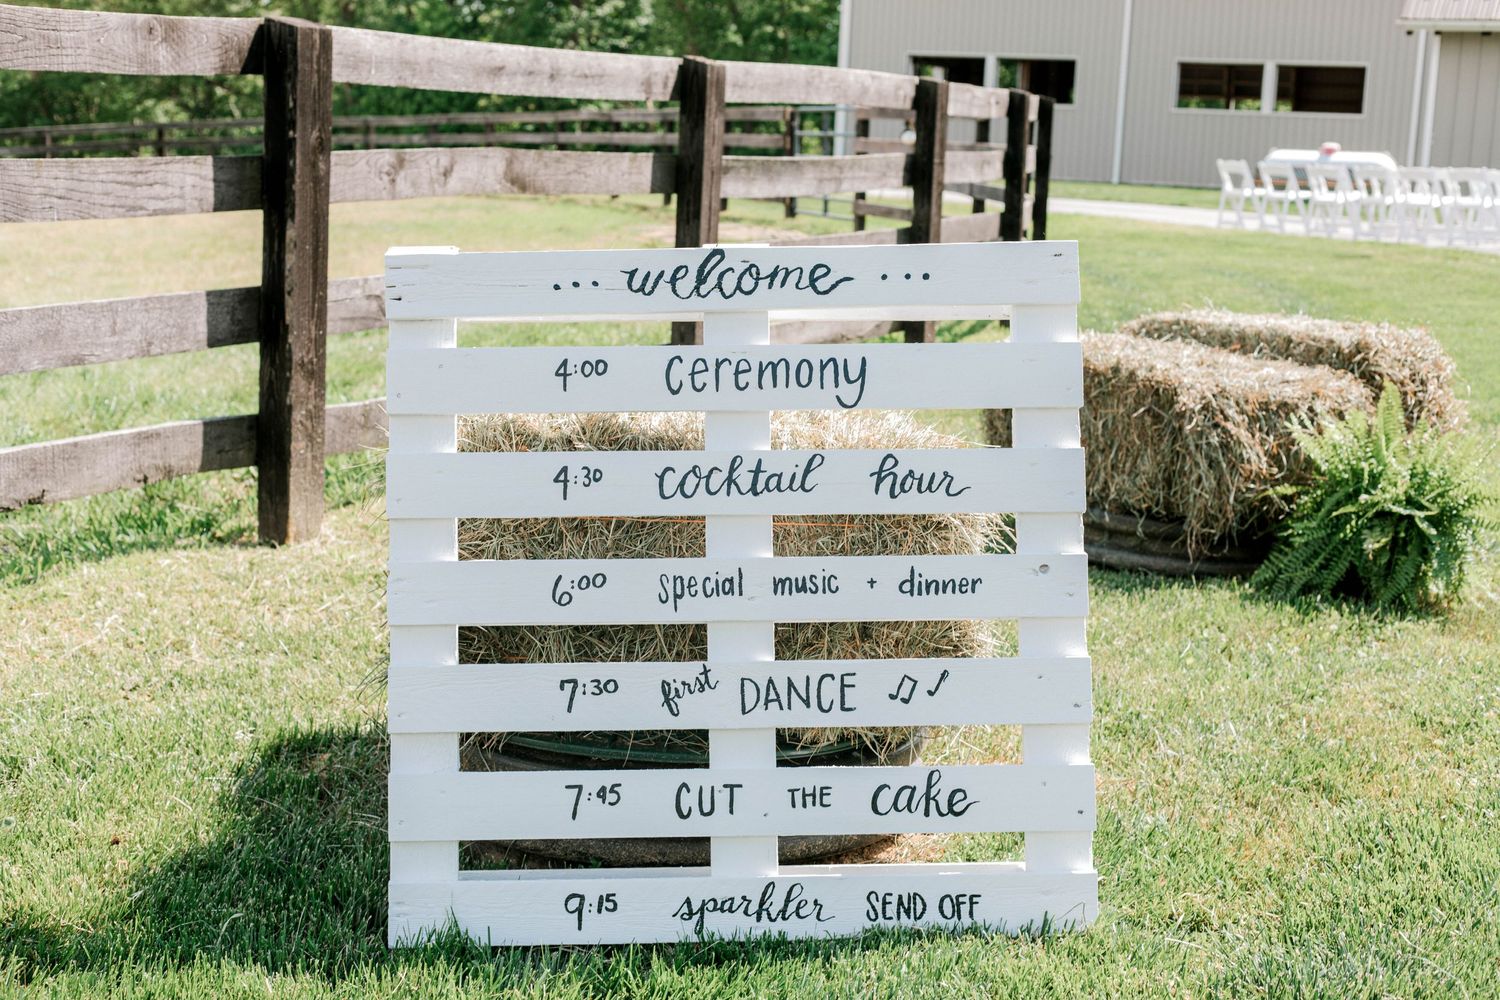 ... welcome ...
4:00 ceremony
4:30 cocktail hour
6:00 special music + dinner
7:30 first DANCE ♫♪
7:45 CUT THE cake
9:15 sparkler SEND OFF